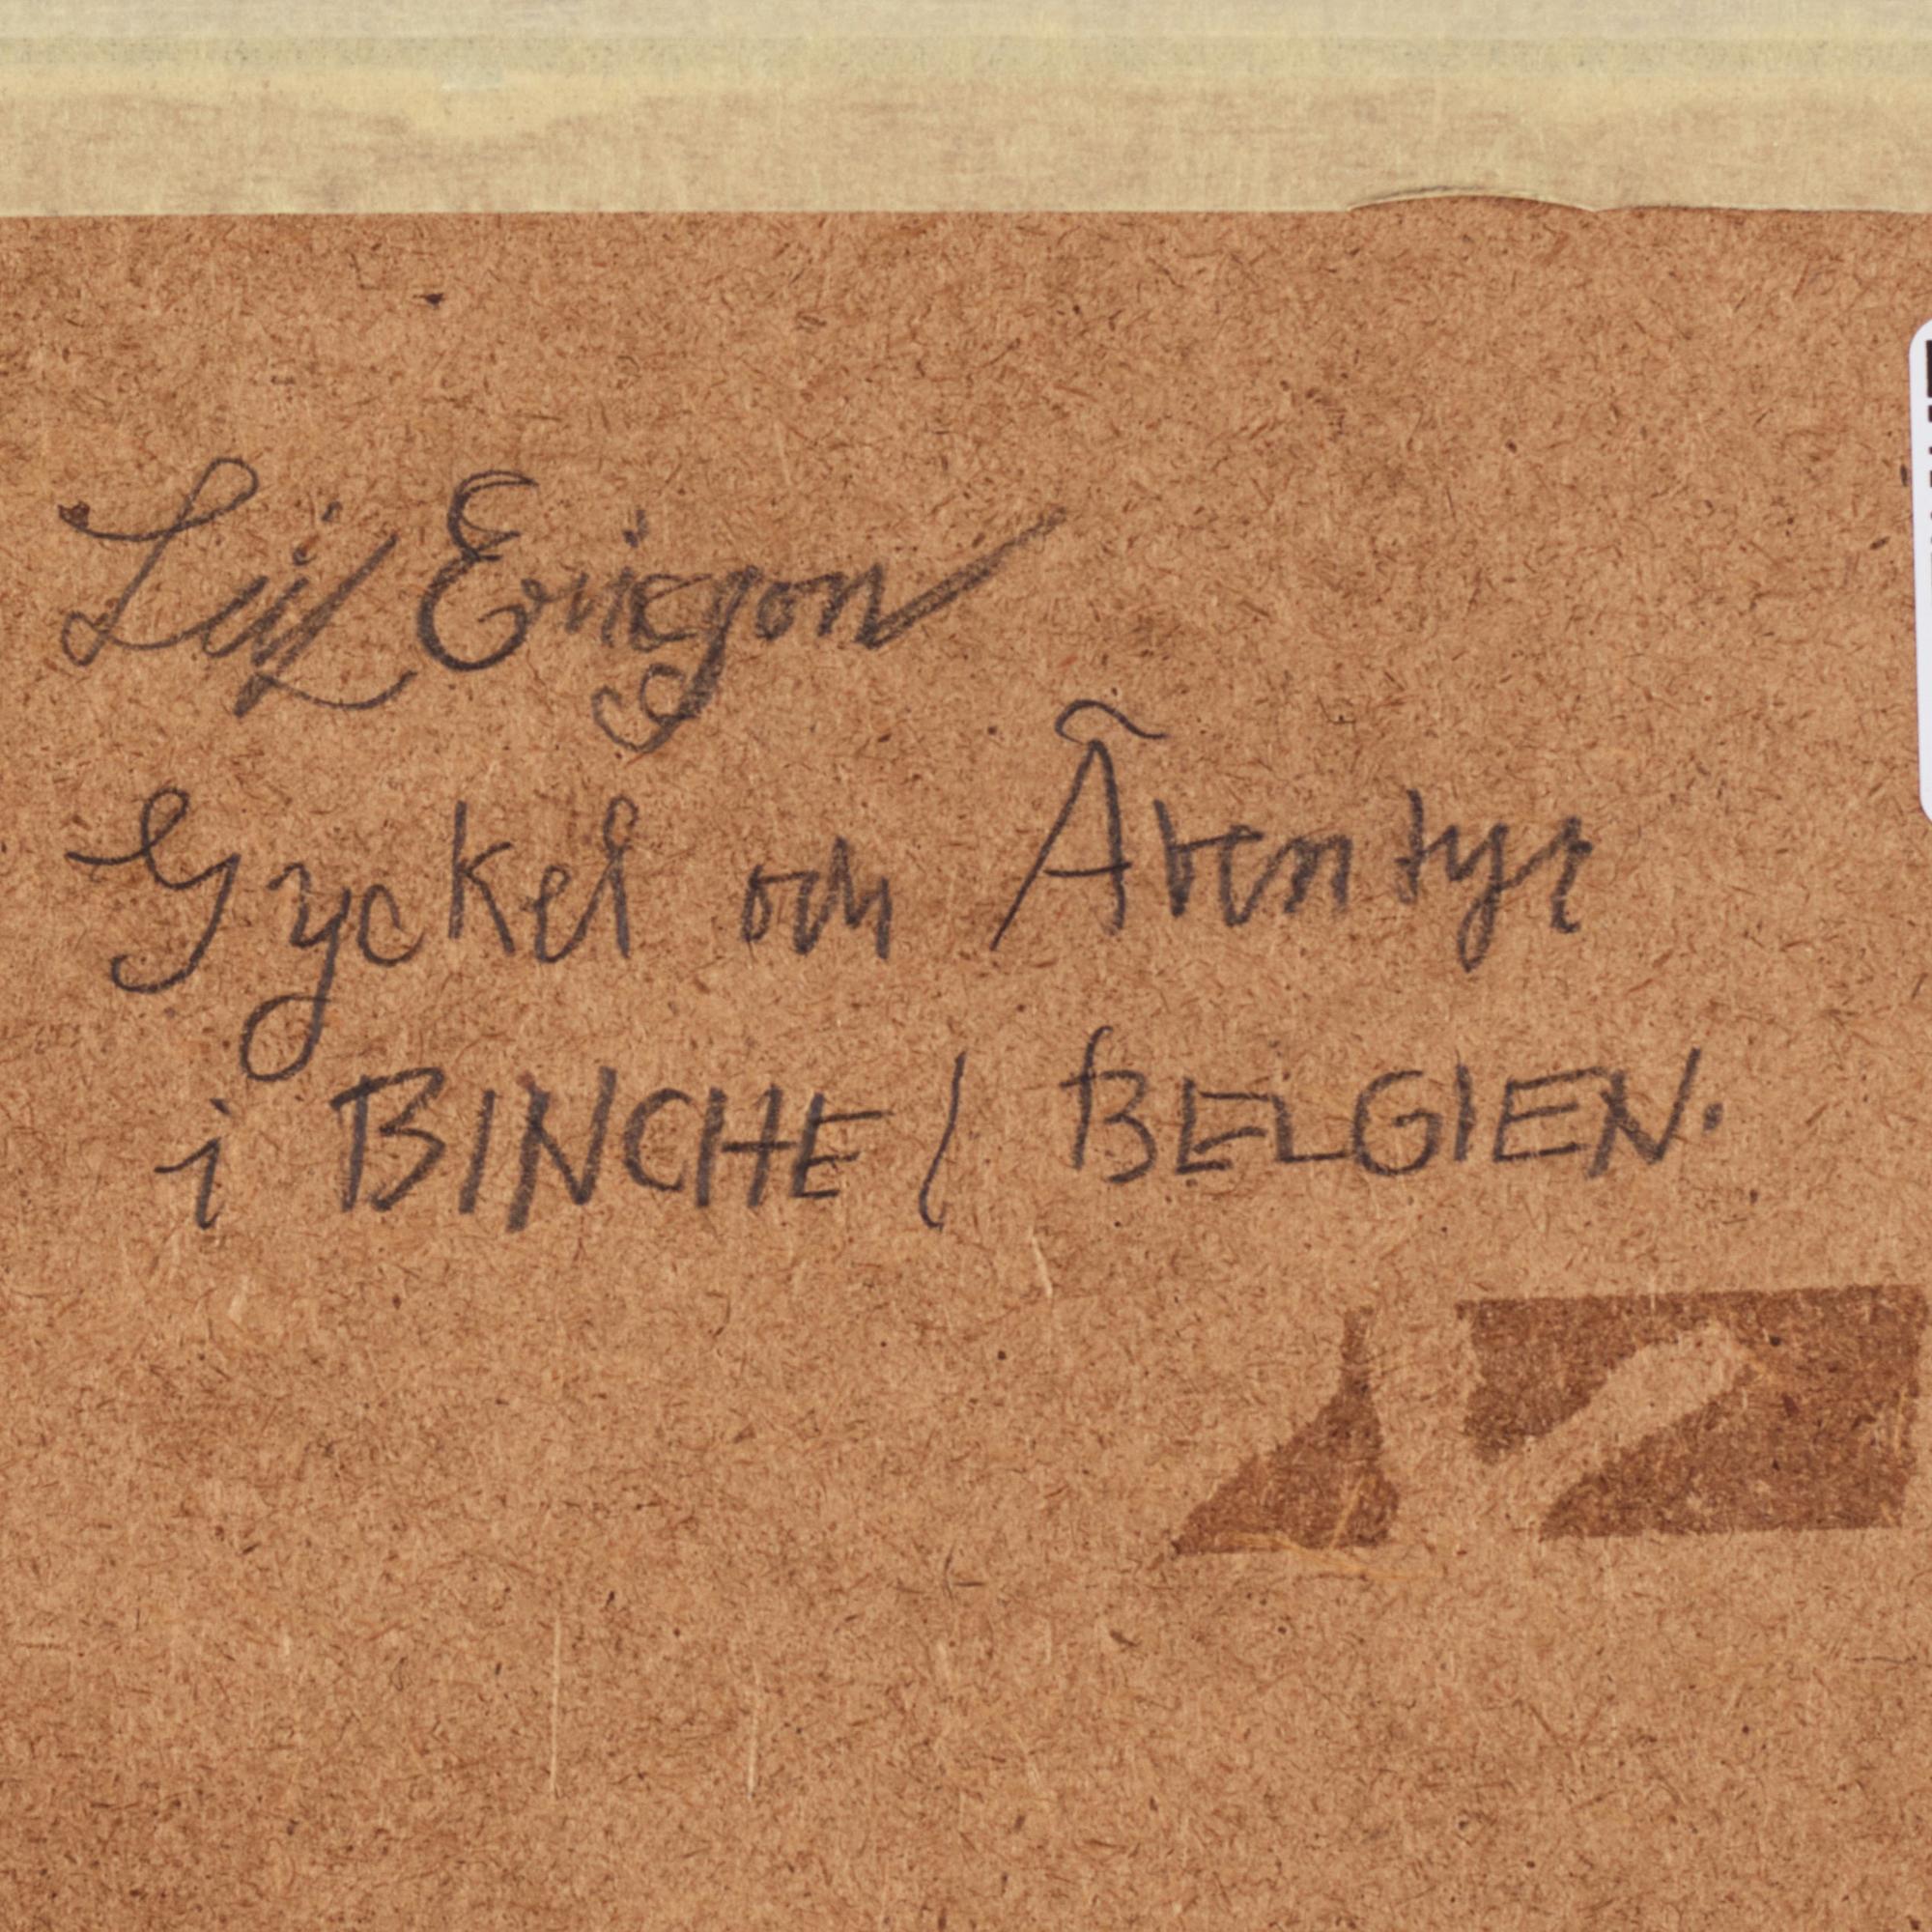 Leif Ericson
Gyckel och Äventyr
i BINCHE / BELGIEN.
12